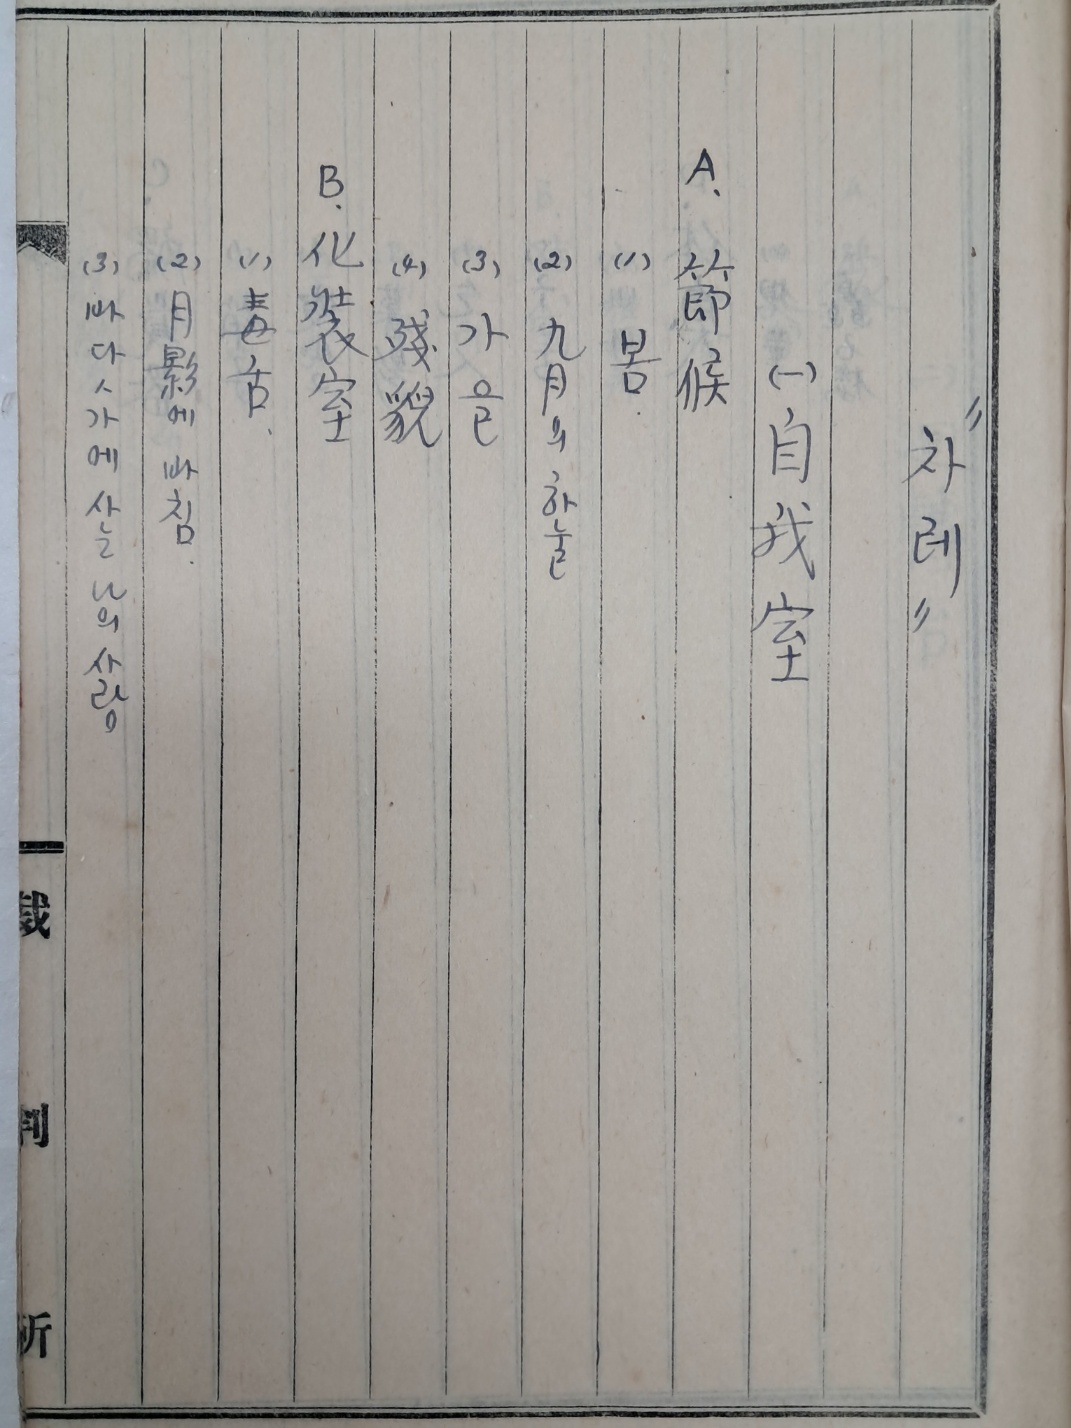 "차레"
(一) 自我室
A. 節候
(1) 봄.
(2) 九月의 하눌
(3) 가을
(4) 殘貌
B. 化裝室
(1) 毒舌.
(2) 月影에 바침.
(3) 바다ㅅ가에 사는 나의 사랑
裁判所